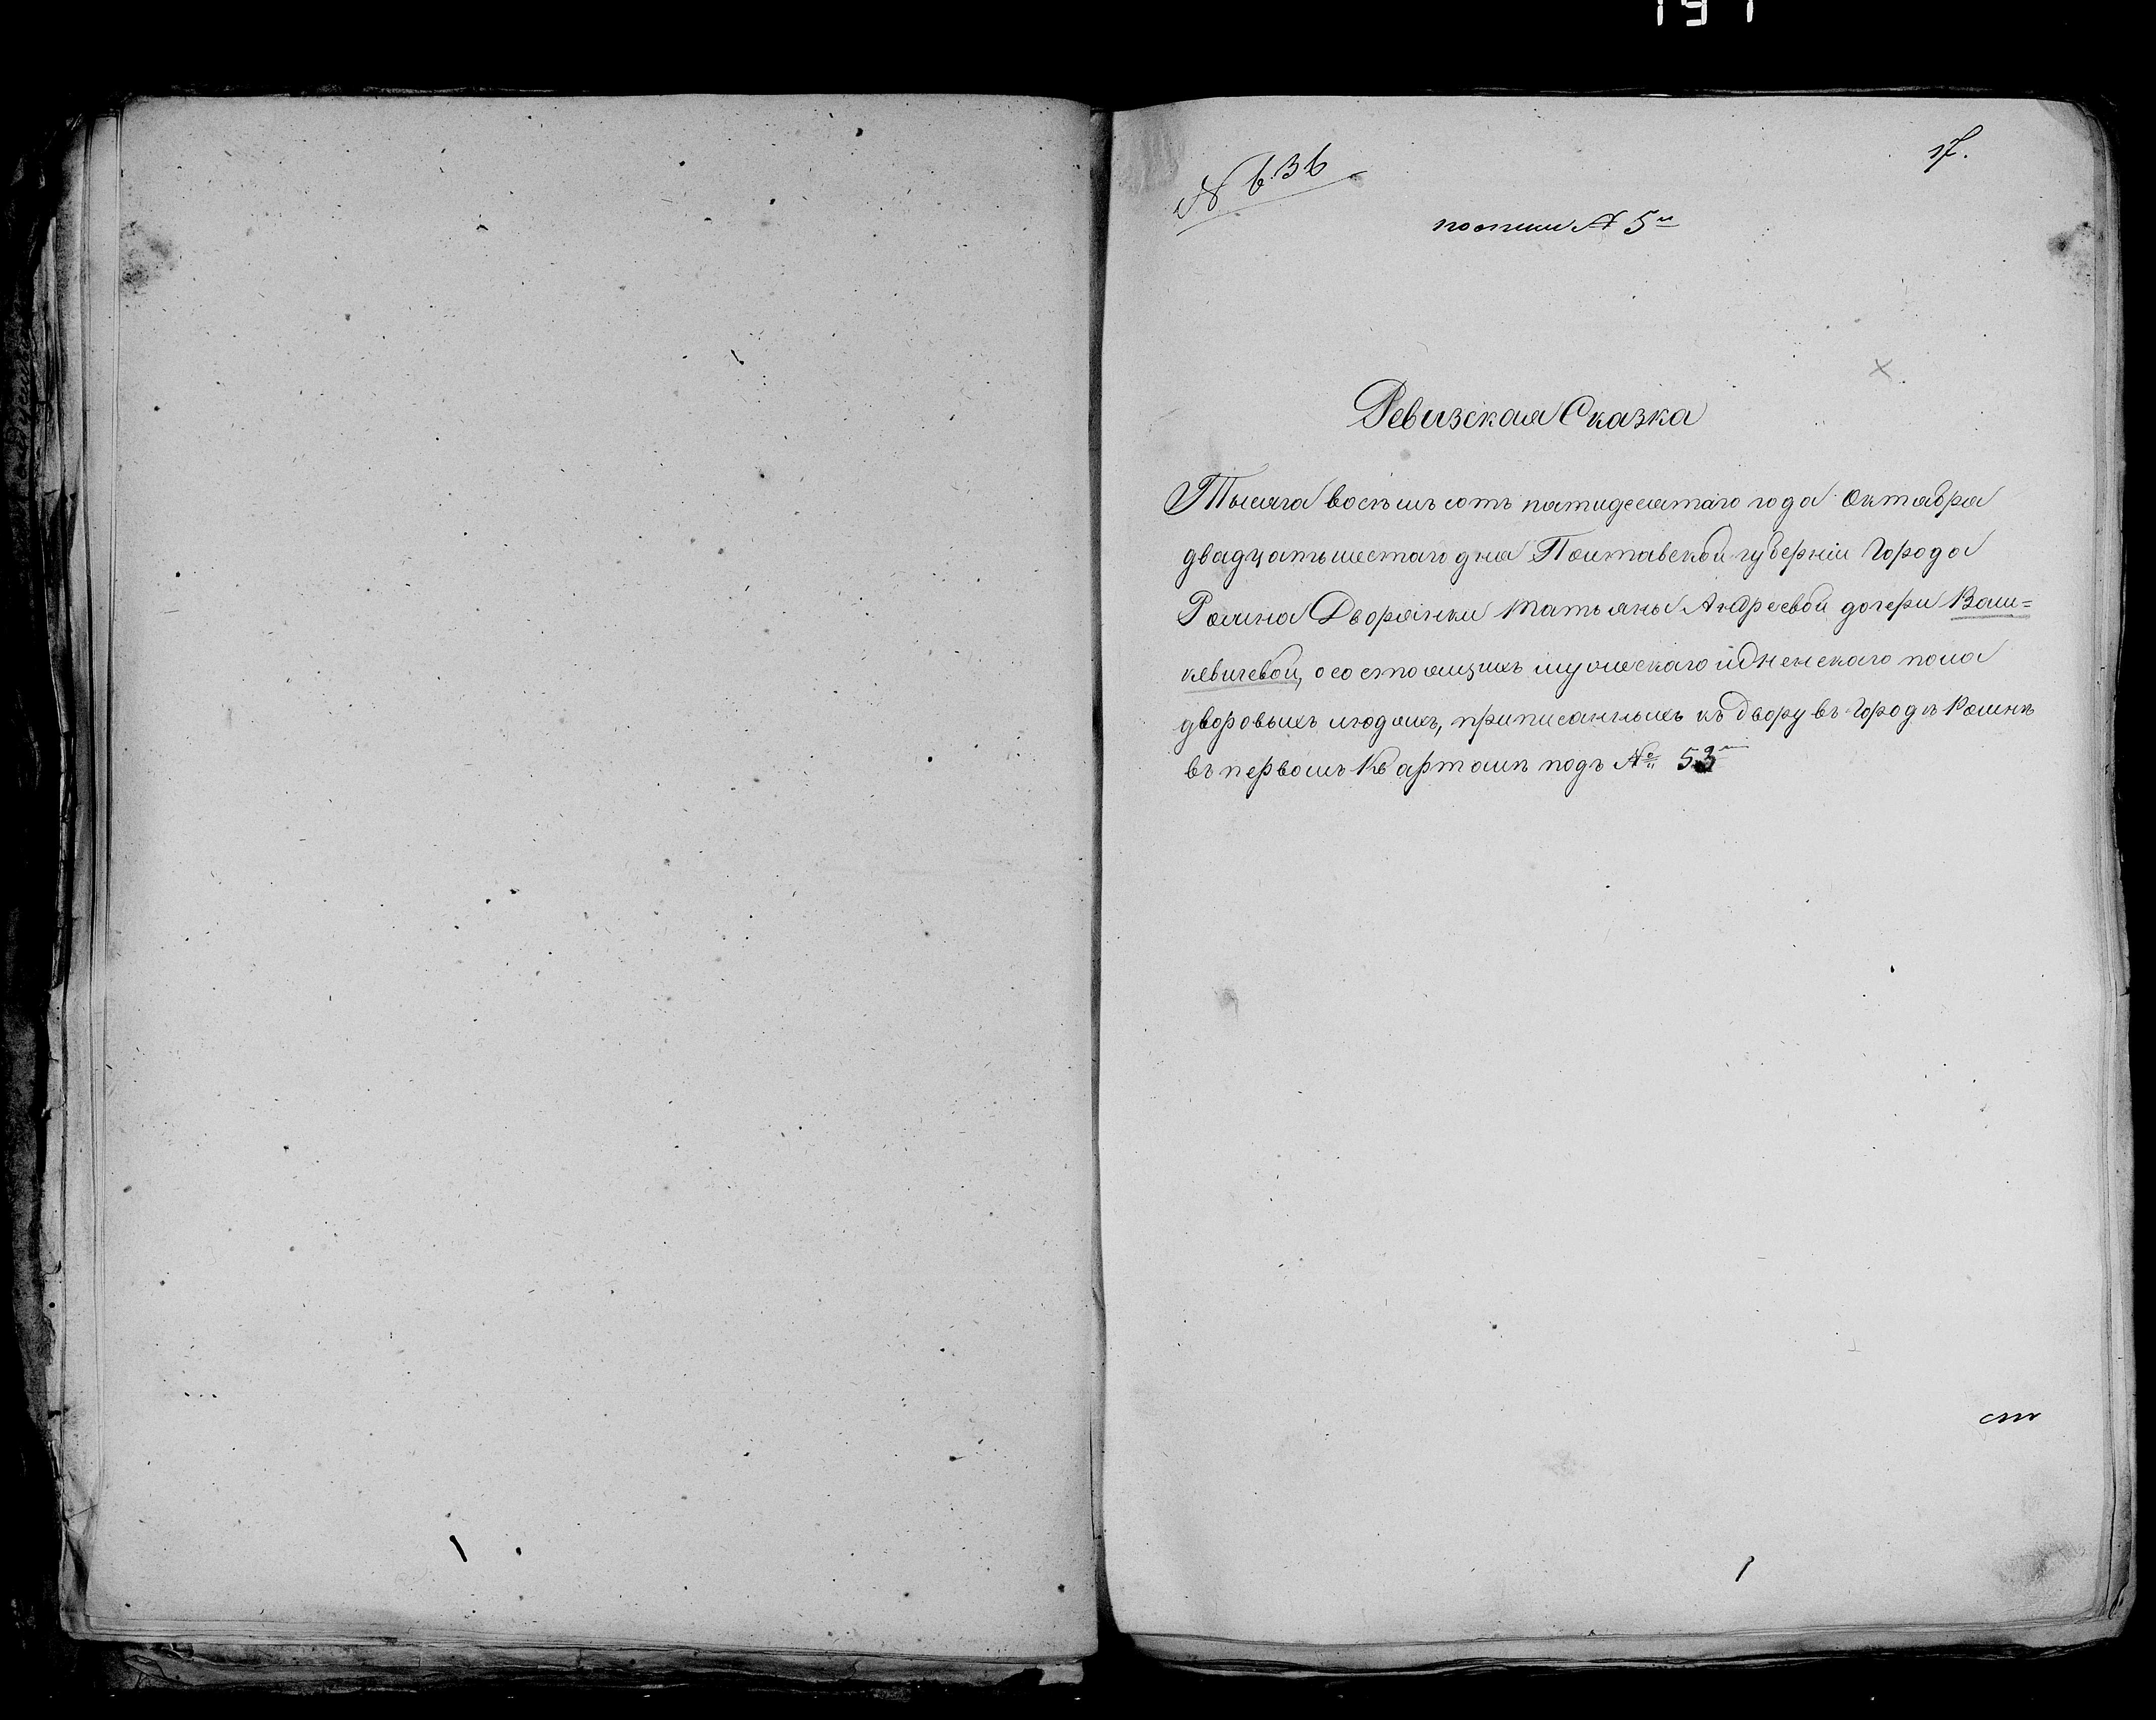 17.
№ 636
по описи № 5й
Ревизская Сказка
Тысяча восемь сотъ пятидесятаго года Октября
двадцать шестаго дня Полтавской губерніи Города
Ромна Дворянки Татьяны Андреевой дочери Ваш=
кевичевой, о состоящихъ мужескаго и женскаго пола
дворовыхъ людяхъ, приписанныхъ къ двору въ Городѣ Ромнѣ
въ первомъ Кварталѣ подъ № 53м